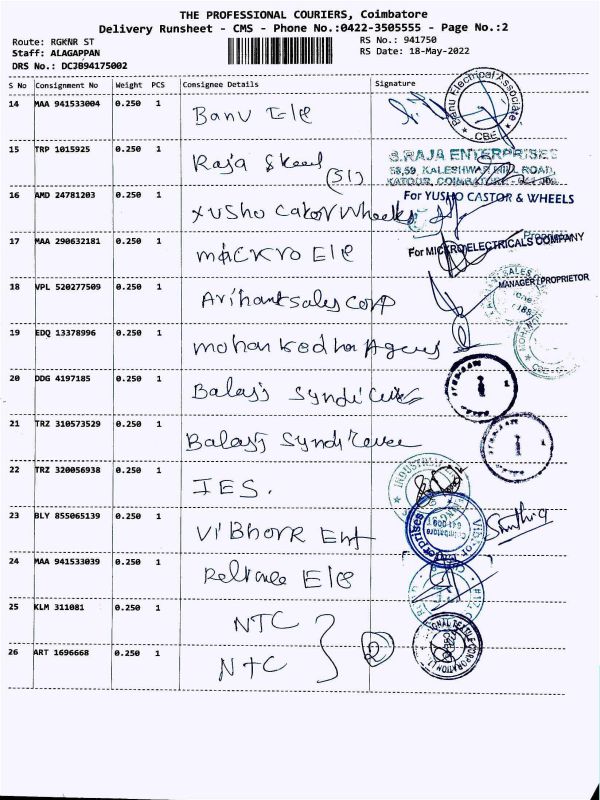 THE PROFESSIONAL COURIERS, Coimbatore
Delivery Runsheet - CMS - Phone No.:0422-3505555 - Page No.:2
Route: RGKNR ST RS No.: 941750
Staff: ALAGAPPAN RS Date: 18-May-2022
DRS No.: DCJB94175002
S No Consignment No Weight PCS Consignee Details Signature
14 MAA 941533004 0.250 1 Banu Ele
Banu Electrical Associate
* CBE *
15 TRP 1015925 0.250 1 Raja
S.RAJA ENTERPRISES
58,59, KALESHWAR MILL ROAD,
KATOOR, COIMBATORE
(31)
16 AMD 24781203 0.250 1 Yusho Castor Wheels
For YUSHO CASTOR & WHEELS
17 MAA 290632181 0.250 1 mackro Ele
For MICKRO ELECTRICALS COMPANY
18 VPL 520277509 0.250 1 Arihant sales Corp
MANAGER / PROPRIETOR
19 EDQ 13378996 0.250 1 mohan
20 DDG 4197185 0.250 1 Balaji
21 TRZ 310573529 0.250 1 Balaji
22 TRZ 320056938 0.250 1 IES.
INDUSTRIAL
23 BLY 855065139 0.250 1 ViBhorr Ent
24 MAA 941533039 0.250 1 Reliance Ele
25 KLM 311081 0.250 1 NTC
26 ART 1696668 0.250 1 NTC
2